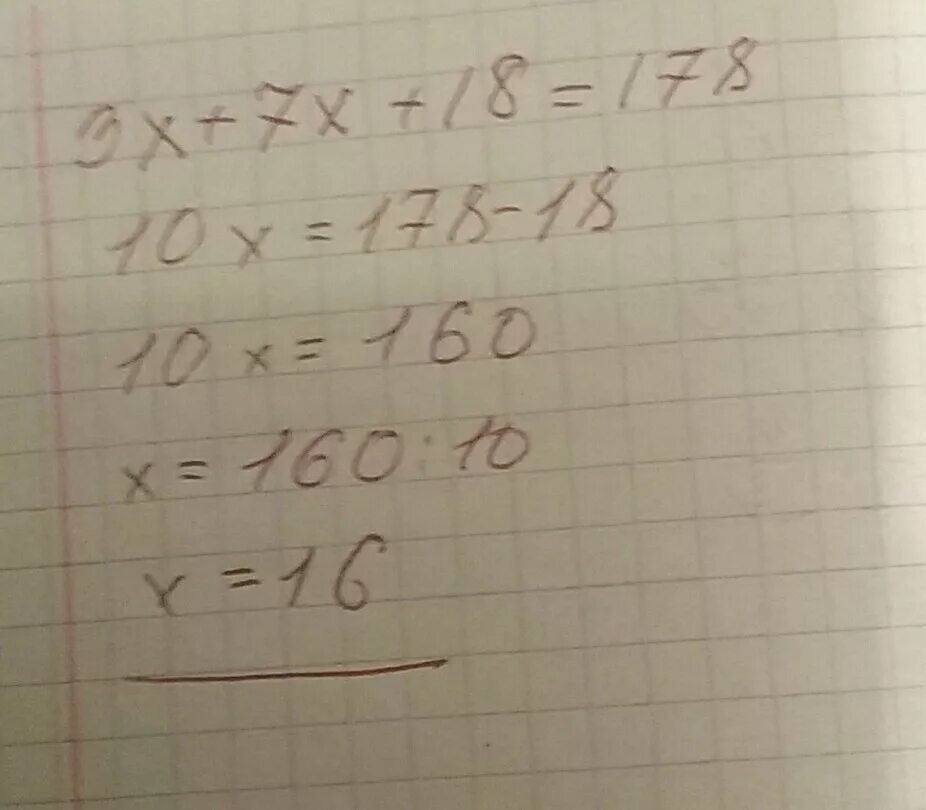 3x+7x+18=178
10x=178-18
10x=160
x=160:10
x=16